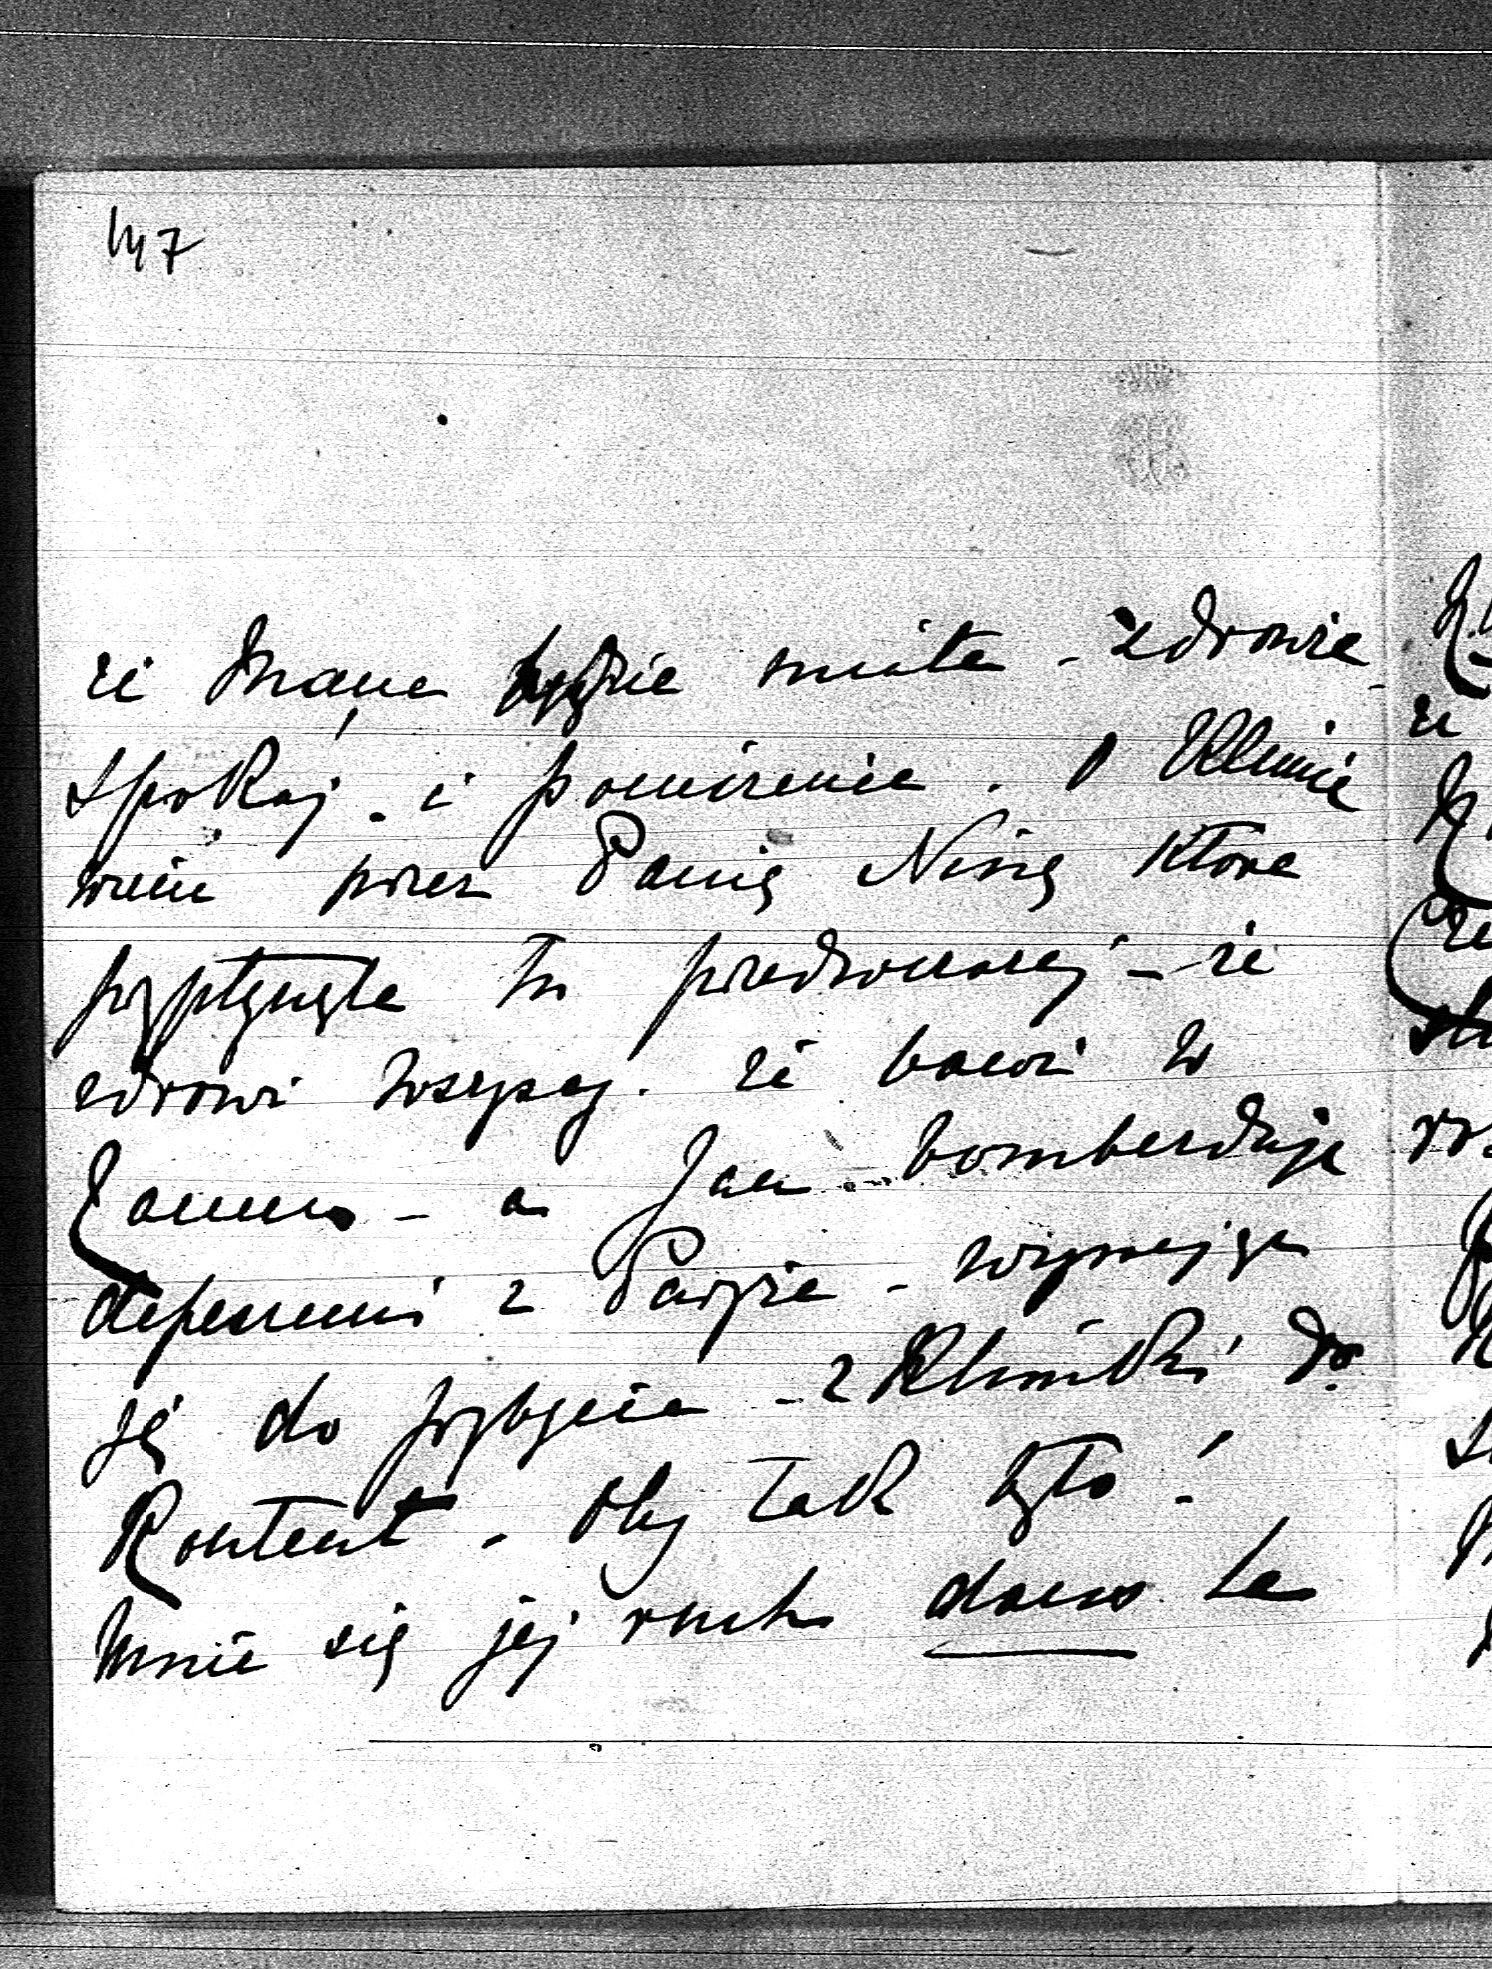 147
że Mama będzie miała - zdrowie -
spokój - i pomirenie . O Klimie
wiem przez Panią Ninę która
przypłynęła tu przedwczoraj - że
zdrowi wszyscy. że bawi w
Zanne - a Jan bombarduje
depeszemi z Paryża - wzywając
ję do przybycia - z Klimką do
Kontent - Oby tak było !
Mnie się jej ruch dawno